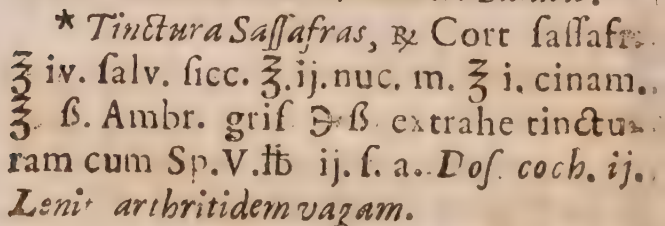 * Tinctura Saſſafras, ℞ Cort ſaſſafr.
℥ iv. ſalv. ſicc. ℥.ij. nuc. m. ℥ i. cinam.
℥ ß. Ambr. griſ ℈ ß extrahe tinctu-
ram cum Sp.V. ℔ ij. ſ. a. Doſ. coch. ij.
Leni arthritidem vagam.